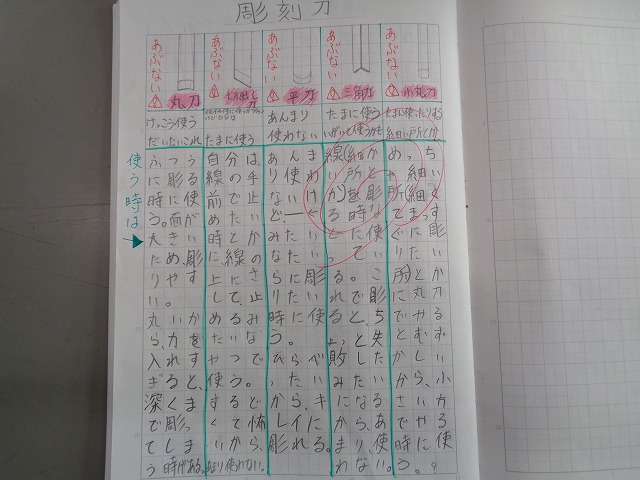 彫刻刀
あぶない
丸刀
けっこう使う
だいたいこれ
使う時は→
ふつう
に彫る
時に使
う。面が
大きい
ため、彫
りやす
い。
丸いか
ら、力を
入れす
ぎると、
深くま
で彫っ
てしま
う時がある。
あぶない
切出し刀
たまに使う
自分は、
線の手
前で止
めたい
時とか
に、線の
上にさ
して、止
めるみ
たいな
やつで
使う。
するど
くて怖
いから、
あまり使わない。
あぶない
平刀
あんまり
使わない
あんま
り使わ
ないけ
どー←
みたい
なたい
らに彫
りたい
時に使
う。
ひらべ
ったい
から、キ
レイに
彫れる。
あぶない
三角刀
たまに使う
線(細か
い所と
か)を彫
る時な
どに使
ってい
る。こ
れで彫
ると、ち
ょっと失
敗した
みたい
になる
から、あ
まり、使
わない。
あぶない
小丸刀
たまに使ったりする
細い所とか
めっち
ゃ細い
所(細く
てまっす
ぐに彫
りたい
所)とか
に丸刀
でやる
とむず
かしい
から、小
さい方
でやる
時に使
う。?